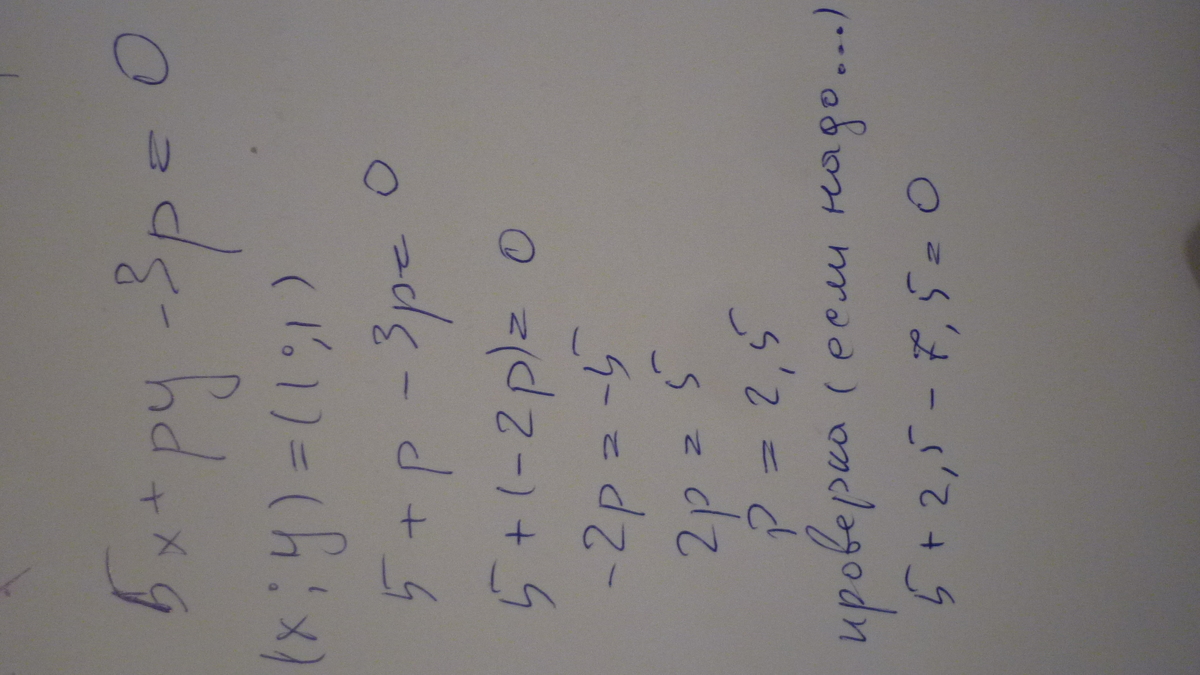 5x + py - 3p = 0
(x; y) = (1; 1)
5 + p - 3p = 0
5 + (-2p) = 0
-2p = -5
2p = 5
p = 2,5
проверка (если надо...)
5 + 2,5 - 7,5 = 0